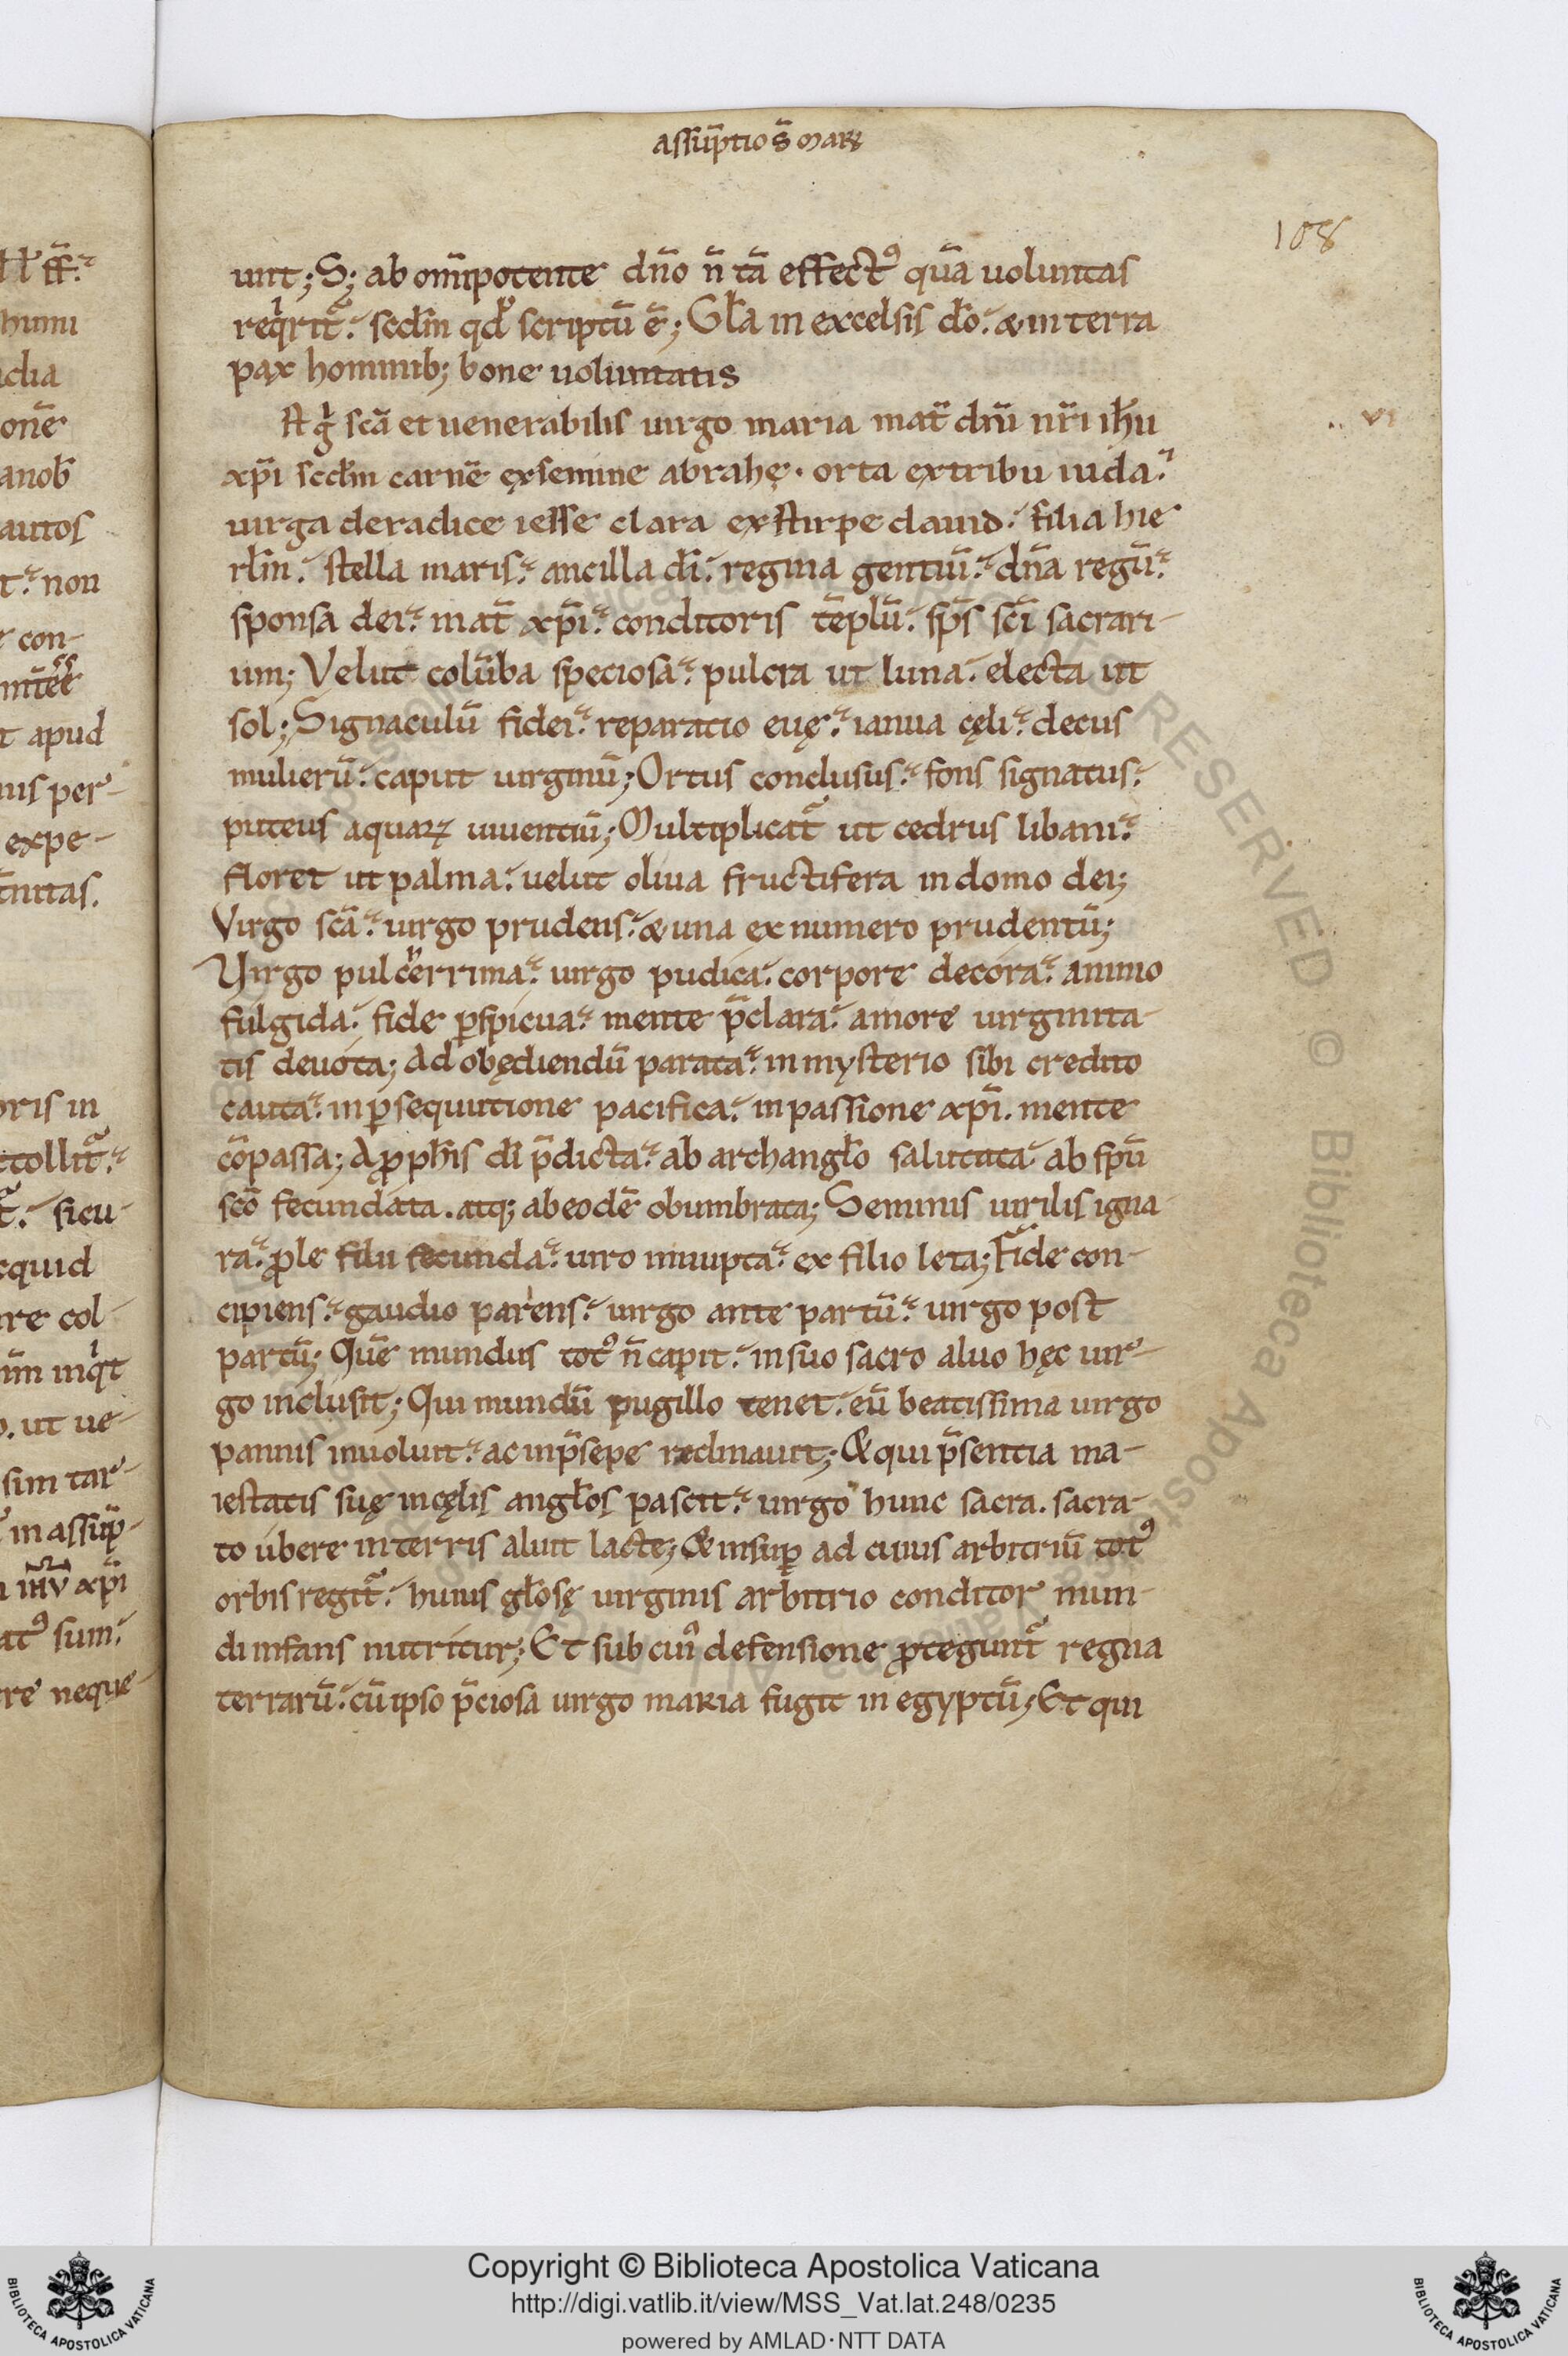 assūptio s̄ marı
108
unt; S; ab om̄ipotente dn̄o n̄ tā effectꝰ quā uoluntas
req̇rit᷑. scd̄m qd̓ scriptū ē; Gl̄a in excelsis dō. & in terra
pax hominib; bone uoluntatis
vi
scā et uenerabilis uirgo maria mat̄ dn̄i nr̄i ih̄u
xp̄i scd̄m carnē exsemine abrahę. orta extribu iuda.
uirga deradice iesse clara exstirpe dauid. filia hie
rl̄m. stella maris. ancilla dī. regina gentiū. dn̄a regū.
sponsa dei. mat̄ xp̄i. conditoris tēplū. sp̄s sc̄i sacrari-
um; Velut colūba speciosa. pulcra ut luna. electa ut
sol; Signaculū fidei. reparatio euę. ianua cęli. decus
mulierū. caput uirginū; Ortus conclusus. fons signatus.
puteus aquaꝝ uiuentiū; Multiplicat᷑ ut cedrus libani.
floret ut palma. uelut oliua fructifera in domo dei;
Virgo scā. uirgo prudens. & una ex numero prudentū;
Virgo pulcͪerrima. uirgo pudica. corpore decora. animo
fulgida. fide ꝑspicua. mente p̄clara. amore uirginita-
tis deuota; Ad obędiendū parata. in mysterio sibi credito
cauta. in ꝑsequutione pacifica. in passione xp̄i. mente
cōpassa; A ꝓph̄is dī p̄dicta. ab archangl̄o salutata. ab spū
scō fecundata. atq; abeodē obumbrata; Seminis uirilis igna
ra. ꝓle filii fecunda. uiro innupta. ex filio leta; Fide con-
cipiens. gaudio parens. uirgo ante partū. uirgo post
partū; Quē mundus totꝰ n̄ capit. in suo sacro aluo hęc uir-
go inclusit; Qui mundū pugillo tenet. eū beatissima uirgo
pannis inuoluit. ac inp̄sepe reclinauit; & qui p̄sentia ma-
iestatis suę incęlis angl̄os pascit. uirgo hunc sacra. sacra-
to ubere interris aluit lacte; & insuꝑ ad cuius arbitriū totꝰ
orbis regit᷑. huius gl̄osę uirginis arbitrio conditor mun-
di infans nutritur; Et sub cuiꝰ defensione ꝓtegunt᷑ regna
terrarū. cū ipso p̄ciosa uirgo maria fugit in egyptū; Et qui
humi
idia
onē
anob̄
autos
t. non
con-
t apud
nis per-
expe-
oris in
tollit᷑.
sicu-
cquid
re col-
inq̇t
. ut ue-
sim tar-
in assūp-
ih̄u xp̄i
atꝰ sum.
re neque
Copyright © Biblioteca Apostolica Vaticana
http://digi.vatlib.it/view/MSS_Vat.lat.248/0235
powered by AMLAD·NTT DATA
BIBLIOTECA APOSTOLICA VATICANA
BIBLIOTECA APOSTOLICA VATICANA